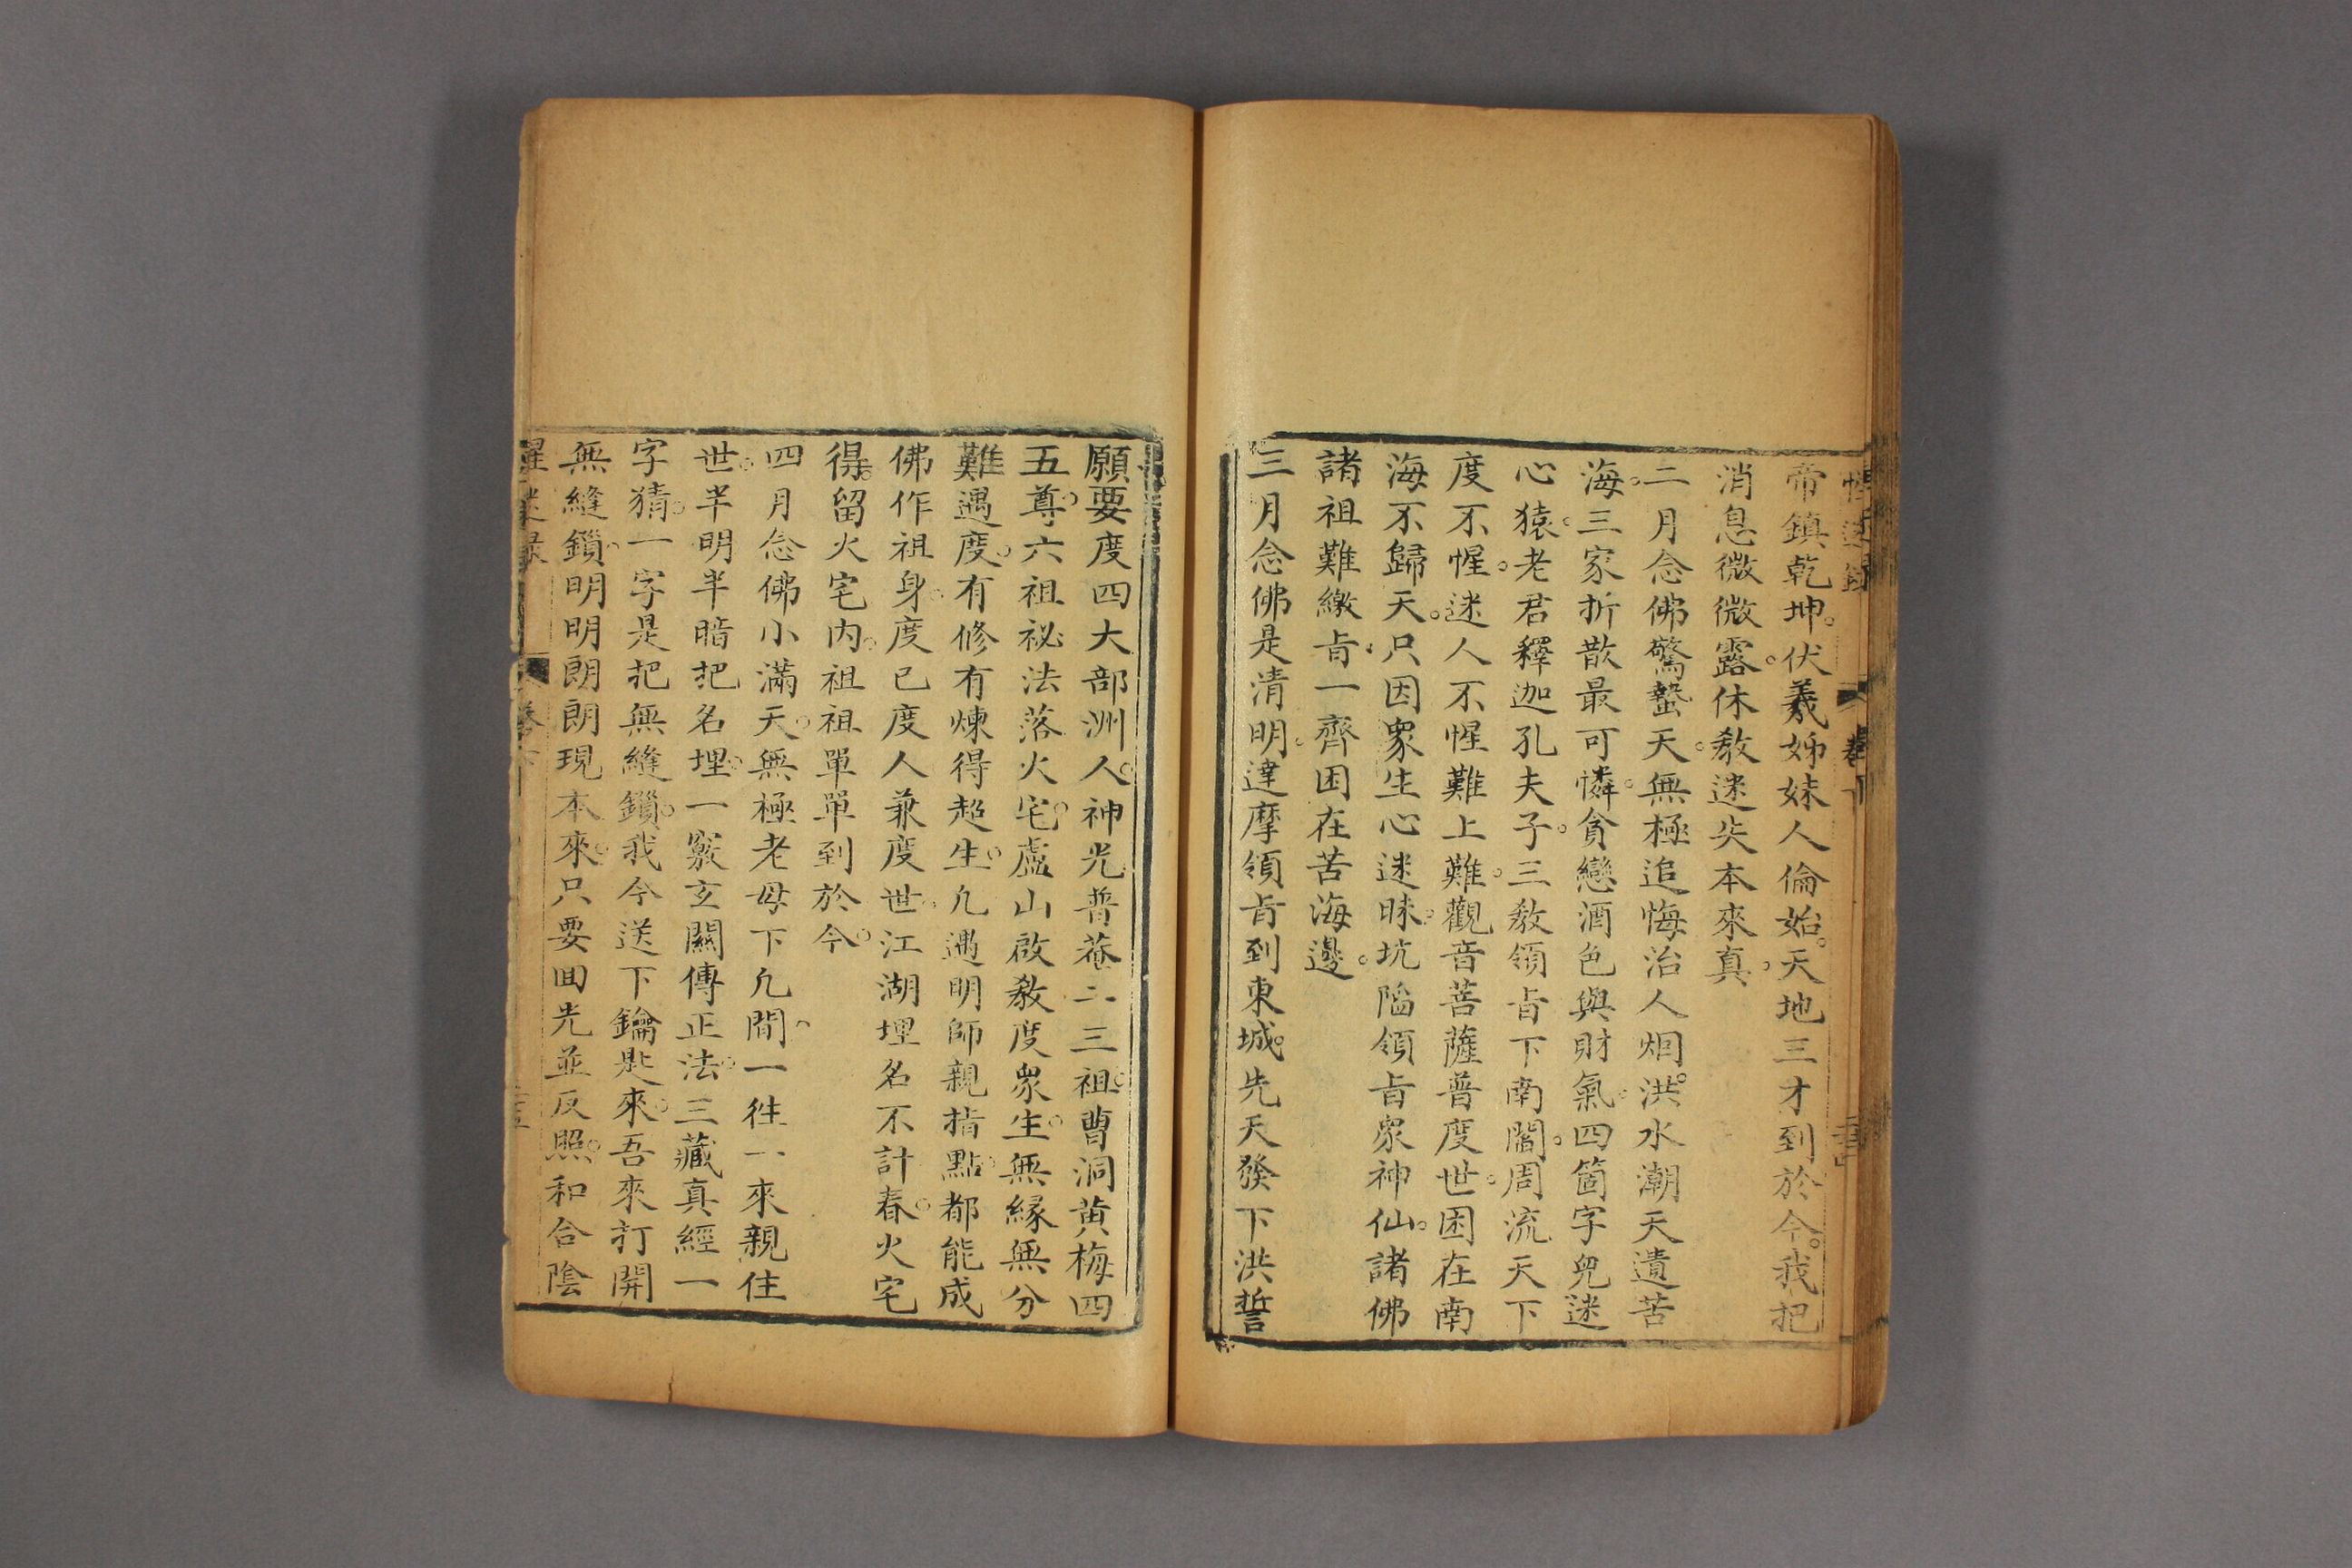 惺迷録 卷下
帝鎮乾坤。伏羲姊妹人倫始。天地三才到於今。我把
消息微微露。休教迷失本來真。
二月念佛驚蟄天。無極追悔治人烟。洪水潮天遺苦
海。三家折散最可憐。貪戀酒色與財氣。四箇字兒迷
心猿。老君釋迦孔夫子。三教領旨下南閻。周流天下
度不惺。迷人不惺難上難。觀音菩薩普度世。困在南
海不歸天。只因衆生心迷昧。坑陷領旨衆神仙。諸佛
諸祖難繳旨。一齊困在苦海邊。
三月念佛是清明。達摩領旨到東城。先天發下洪誓
願要度四大部洲人。神光普菴二三祖。曹洞黃梅四
五尊。六祖祕法落火宅。盧山啟教度衆生。無緣無分
難遇度。有修有煉得超生。凢遇明師親指點。都能成
佛作祖身。度已度人兼度世。江湖埋名不計春。火宅
得留火宅內。祖祖單單到於今。
四月念佛小滿天。無極老母下凢間。一徃一來親住
世。半明半暗把名埋。一竅玄關傳正法。三藏真經一
字猜。一字是把無縫鎖。我今送下鑰匙來。吾來打開
無縫鎖。明明朗朗現本來。只要囬光並反照。和合陰
惺迷録 卷下